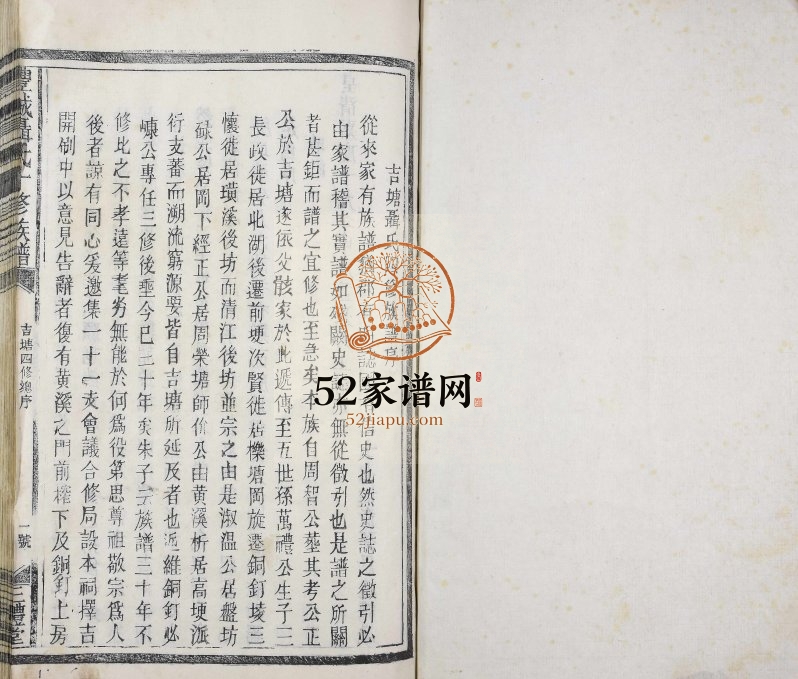 吉塘聶氏四修族譜序
從來家有族譜猶郡有史也然史誌之徵引必
由家譜稽其實譜如史無從徵引也是譜之所關
者甚鉅而譜之宜修也至急矣本族自周智公塟其考公正
公於吉塘遂依父骸家於此遞傳至五世孫萬禮公生子三
長政徙居北湖後遷前埂次賢徙居櫟塘岡旋遷銅釘堎三
懷徙居璜溪後坊而清江後坊並宗之由是淑溫公居盤坊
碌公居岡下經正公居周榮塘師价公由黃溪析居高埂派
衍支蕃而溯流窮源要皆自吉塘所延及者也近維銅釘必
公專任三修後垂今已三十年矣朱子云族譜三十年不
修比之不孝遠等耄劣無能於何爲役第思尊祖敬宗爲人
後者諒有同心爰邀集一十一支會議合修局設本祠擇吉
開刷中以意見告辭者復有黃溪之門前榨下及銅釘上房
豐城聶氏十修族譜
吉塘四修總序
一號
三禮堂
52家谱网
52jiapu.com